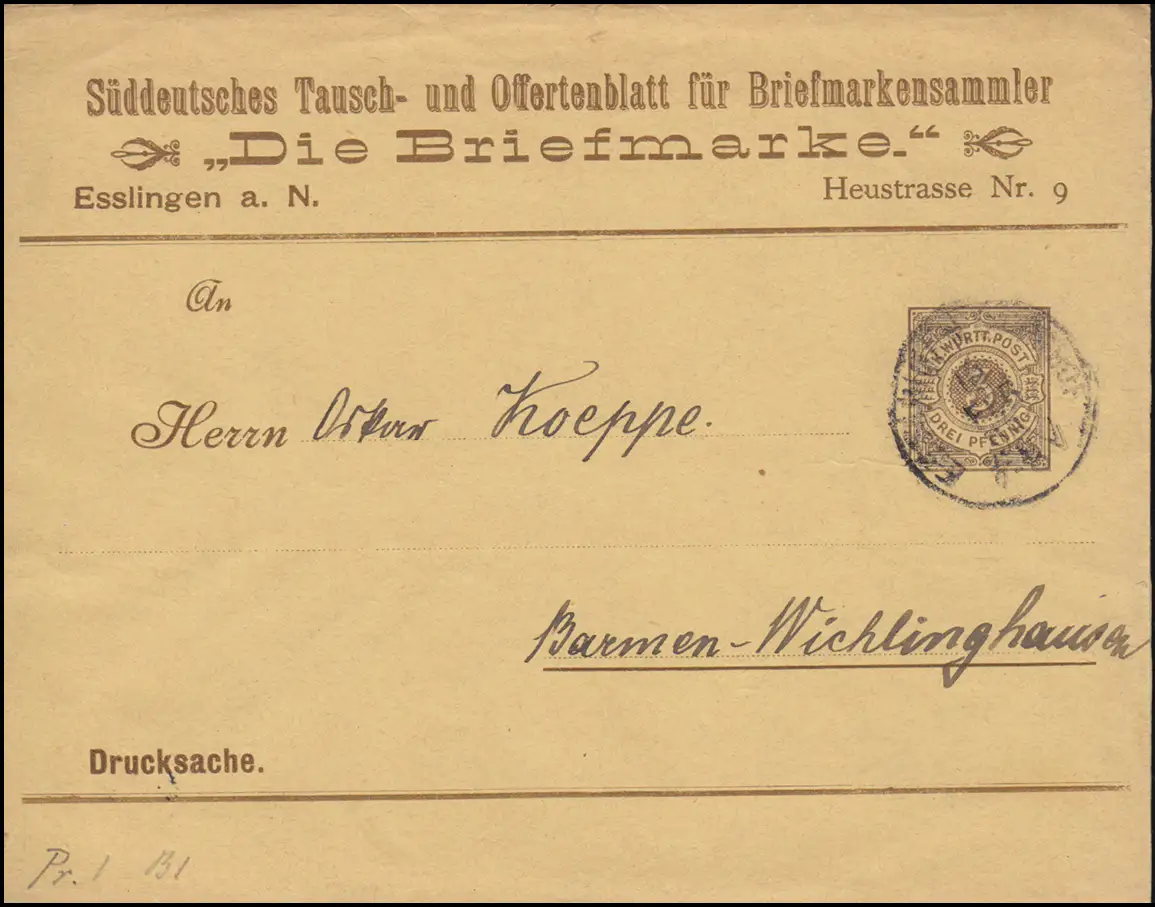 Süddeutsches Tausch- und Offertenblatt für Briefmarkensammler
„Die Briefmarke.“
Esslingen a. N. Heustrasse Nr. 9
An
K. WÜRTT. POST
DREI PFENNIG
Herrn Oskar Koeppe.
Barmen-Wichlinghausen
Drucksache.
Pr. 1 B1